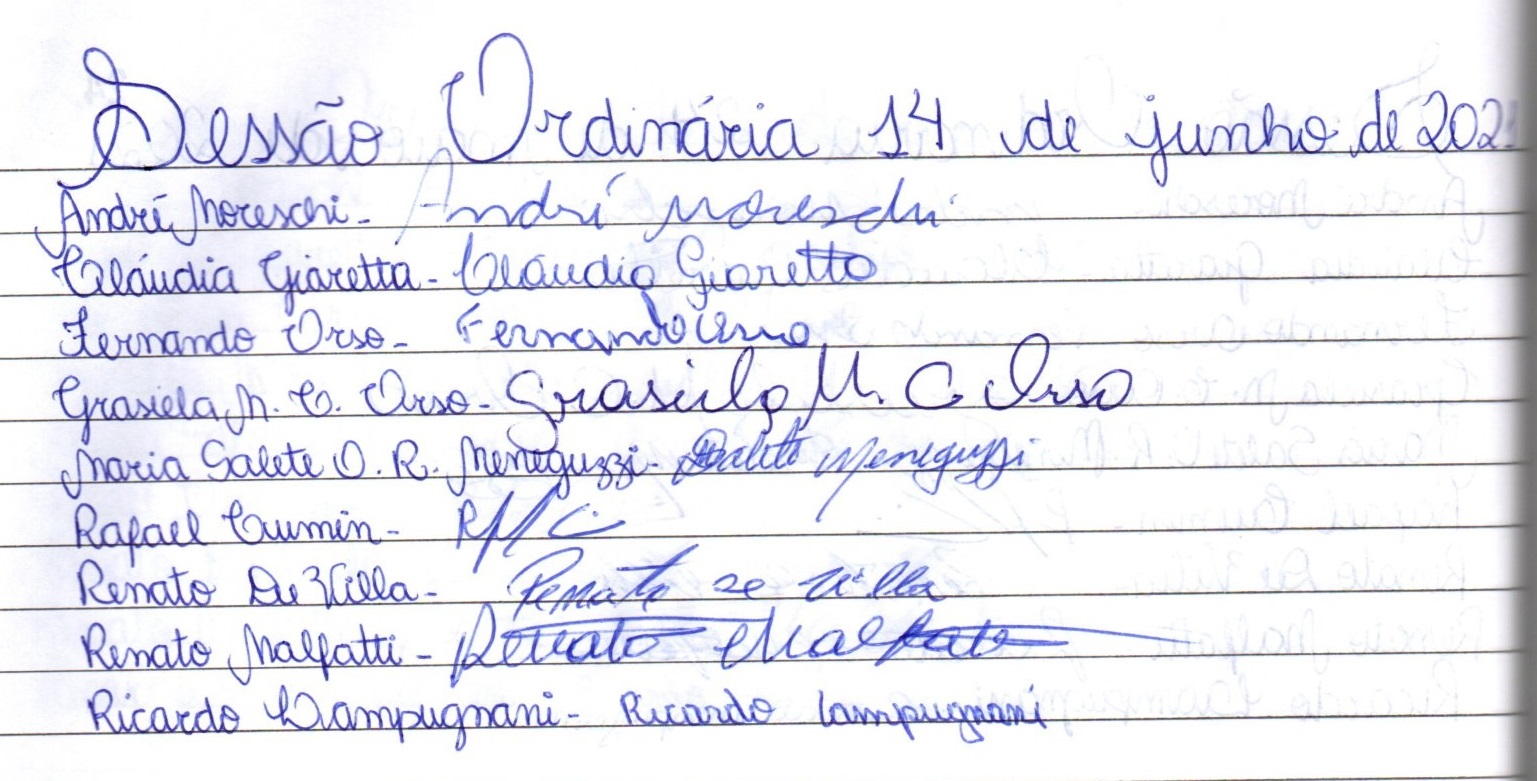 Sessão Ordinária 14 de junho de 2021
André Moreschi - André Moreschi
Cláudia Giaretta - Cláudia Giaretta
Fernando Orso - Fernando Orso
Grasiela M. C. Orso - Grasiela M. C Orso
Maria Salete O. R. Meneguzzi - Salete Meneguzzi
Rafael Crumin -
Renato De Villa - Renato de Villa
Renato Malfatti - Renato Malfatti
Ricardo Lampugnani - Ricardo Lampugnani